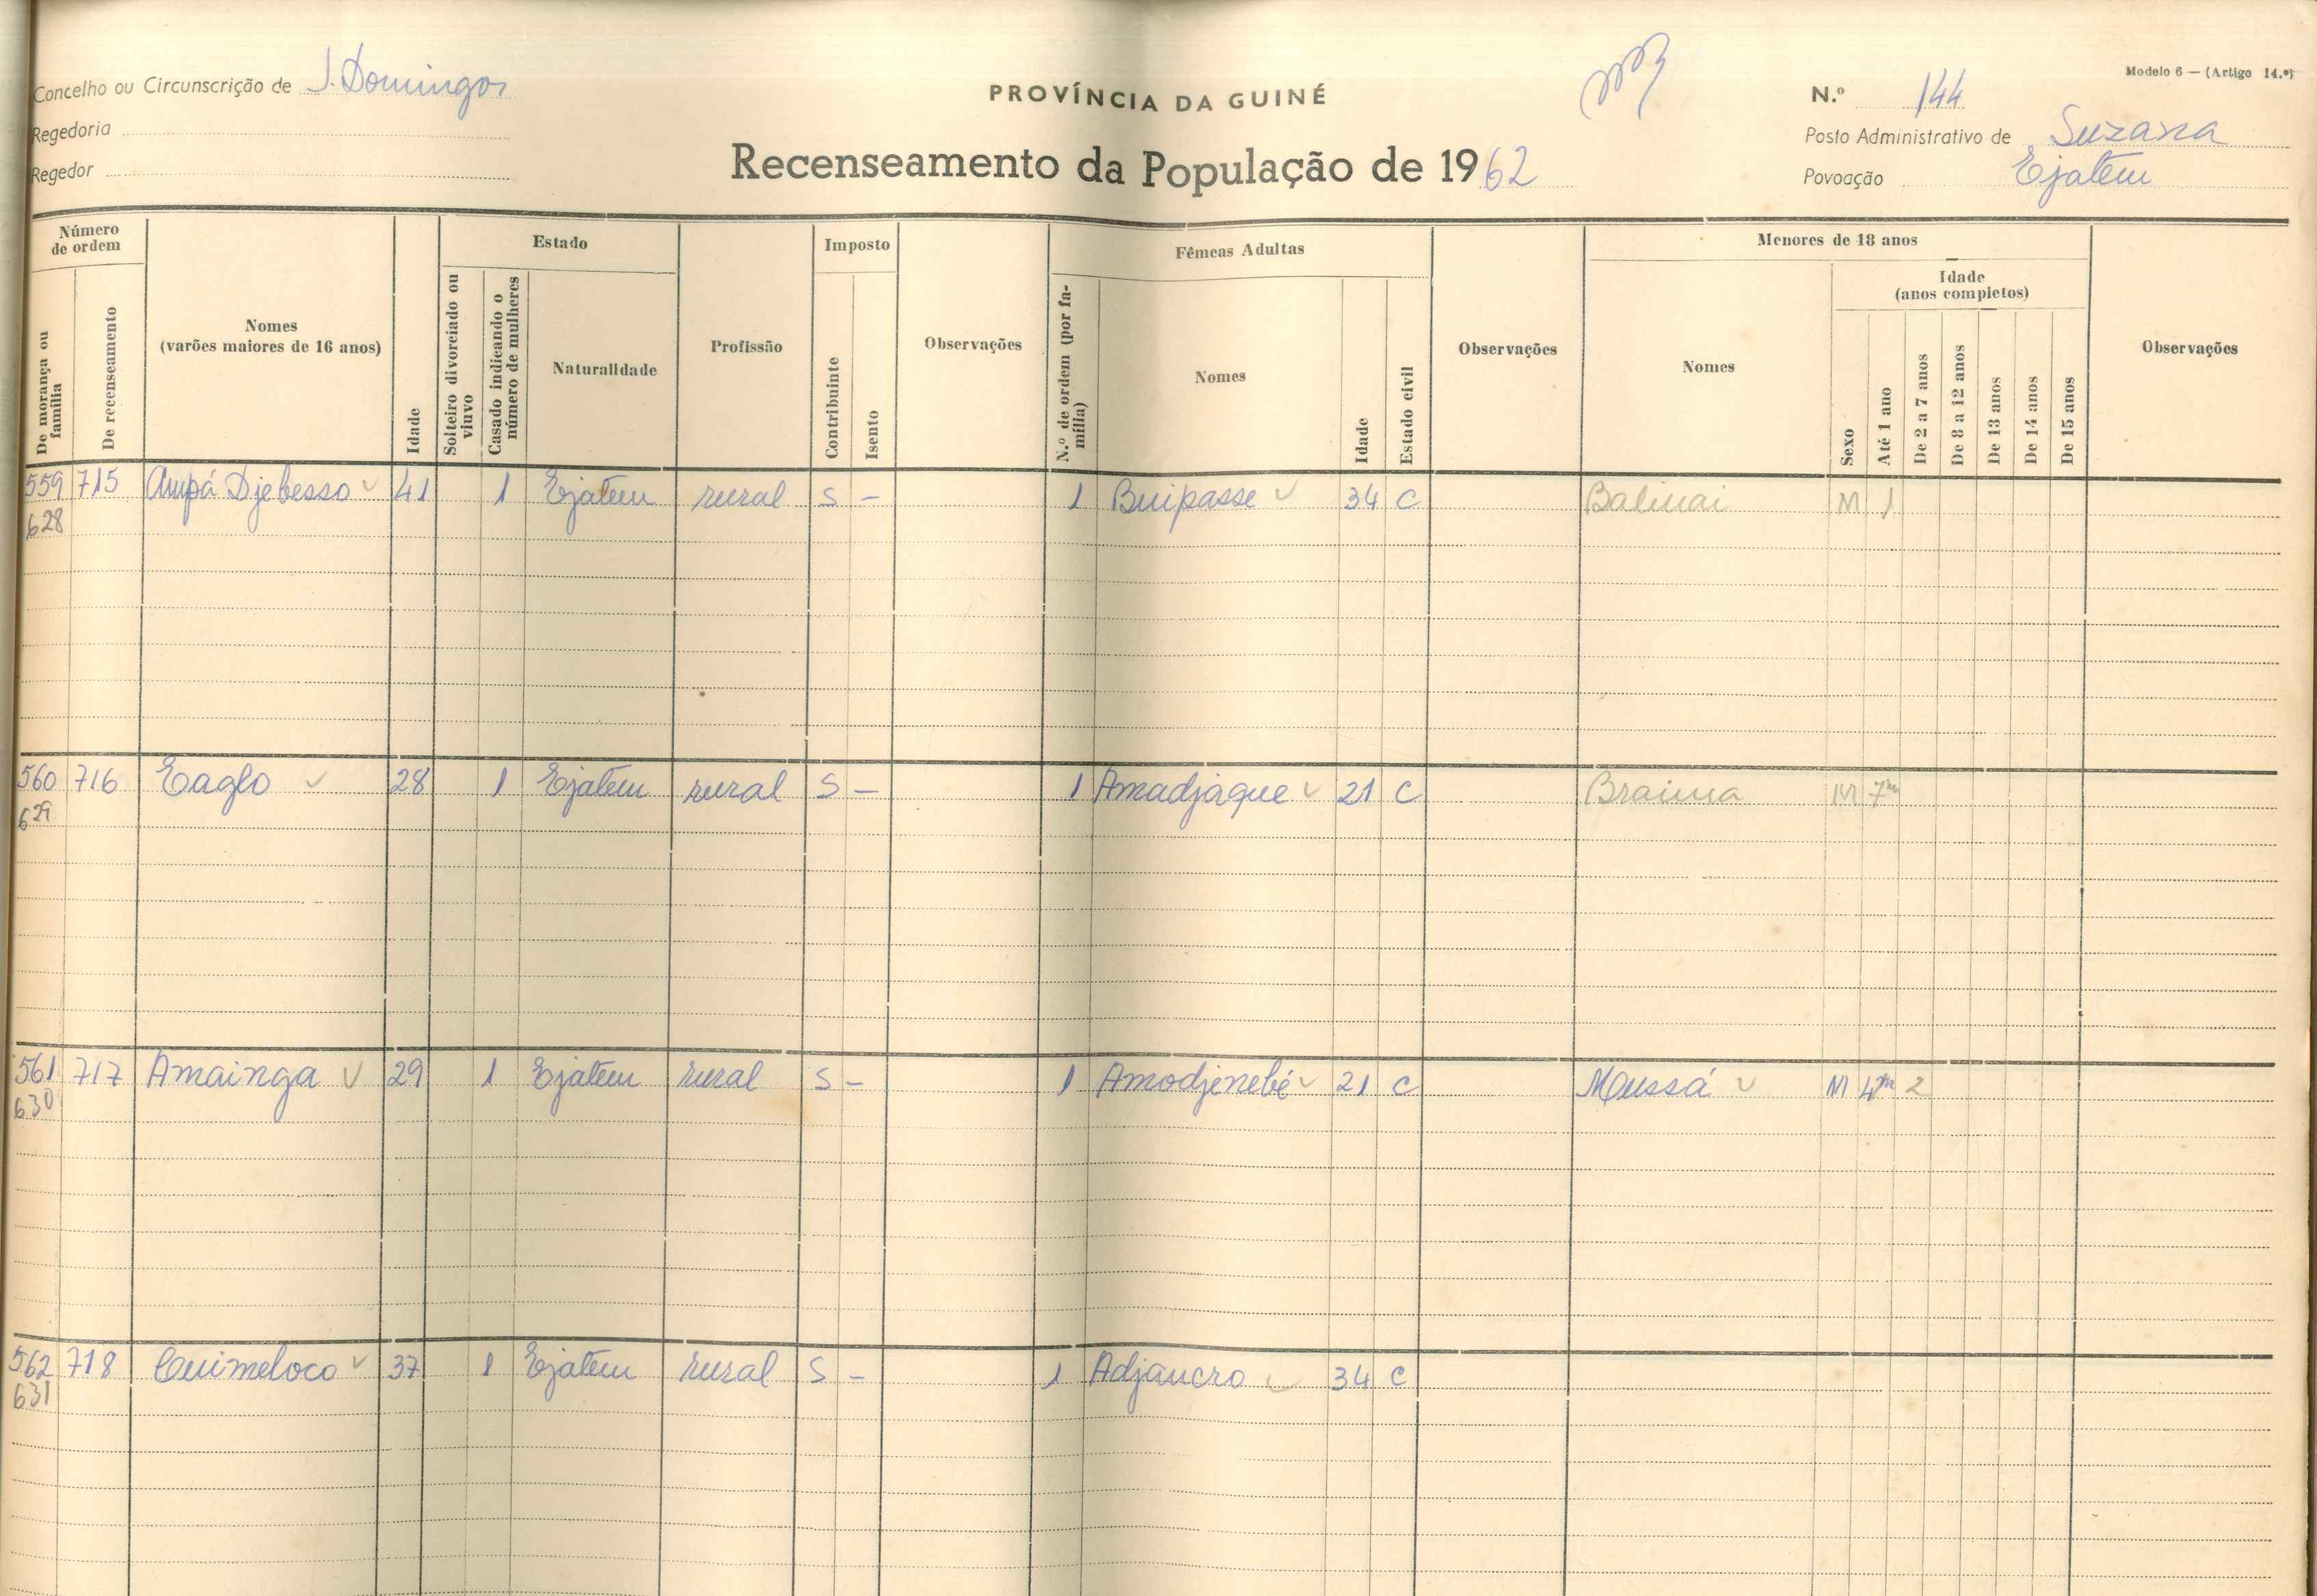 Concelho ou Circunscrição de S. Domingos
Regedoria
Regedor
PROVÍNCIA DA GUINÉ
Recenseamento da População de 1962
Modelo 6 — (Artigo 14.º)
N.º 144
Posto Administrativo de Suzana
Povoação Ejatem
Número de ordem
De morança ou família
De recenseamento
Nomes
(varões maiores de 16 anos)
Idade
Estado
Solteiro divorciado ou viuvo
Casado indicando o número de mulheres
Naturalidade
Profissão
Imposto
Contribuinte
Isento
Observações
Fêmeas Adultas
N.º de ordem (por família)
Nomes
Idade
Estado civil
Observações
Menores de 18 anos
Nomes
Sexo
Idade
(anos completos)
Até 1 ano
De 2 a 7 anos
De 8 a 12 anos
De 13 anos
De 14 anos
De 15 anos
Observações
559 715 Ampá Djebesso 41 1 Ejatem rural S — 1 Buipasse 34 C Balinai M 1
628
560 716 Eaglo 28 1 Ejatem rural S — 1 Amadjaque 21 C Braima M 7m
629
561 717 Amainga 29 1 Ejatem rural S — 1 Amodjenebé 21 C Mussá M 4m 2
630
562 718 Cuimeloco 37 1 Ejatem rural S — 1 Adjancro 34 C
631